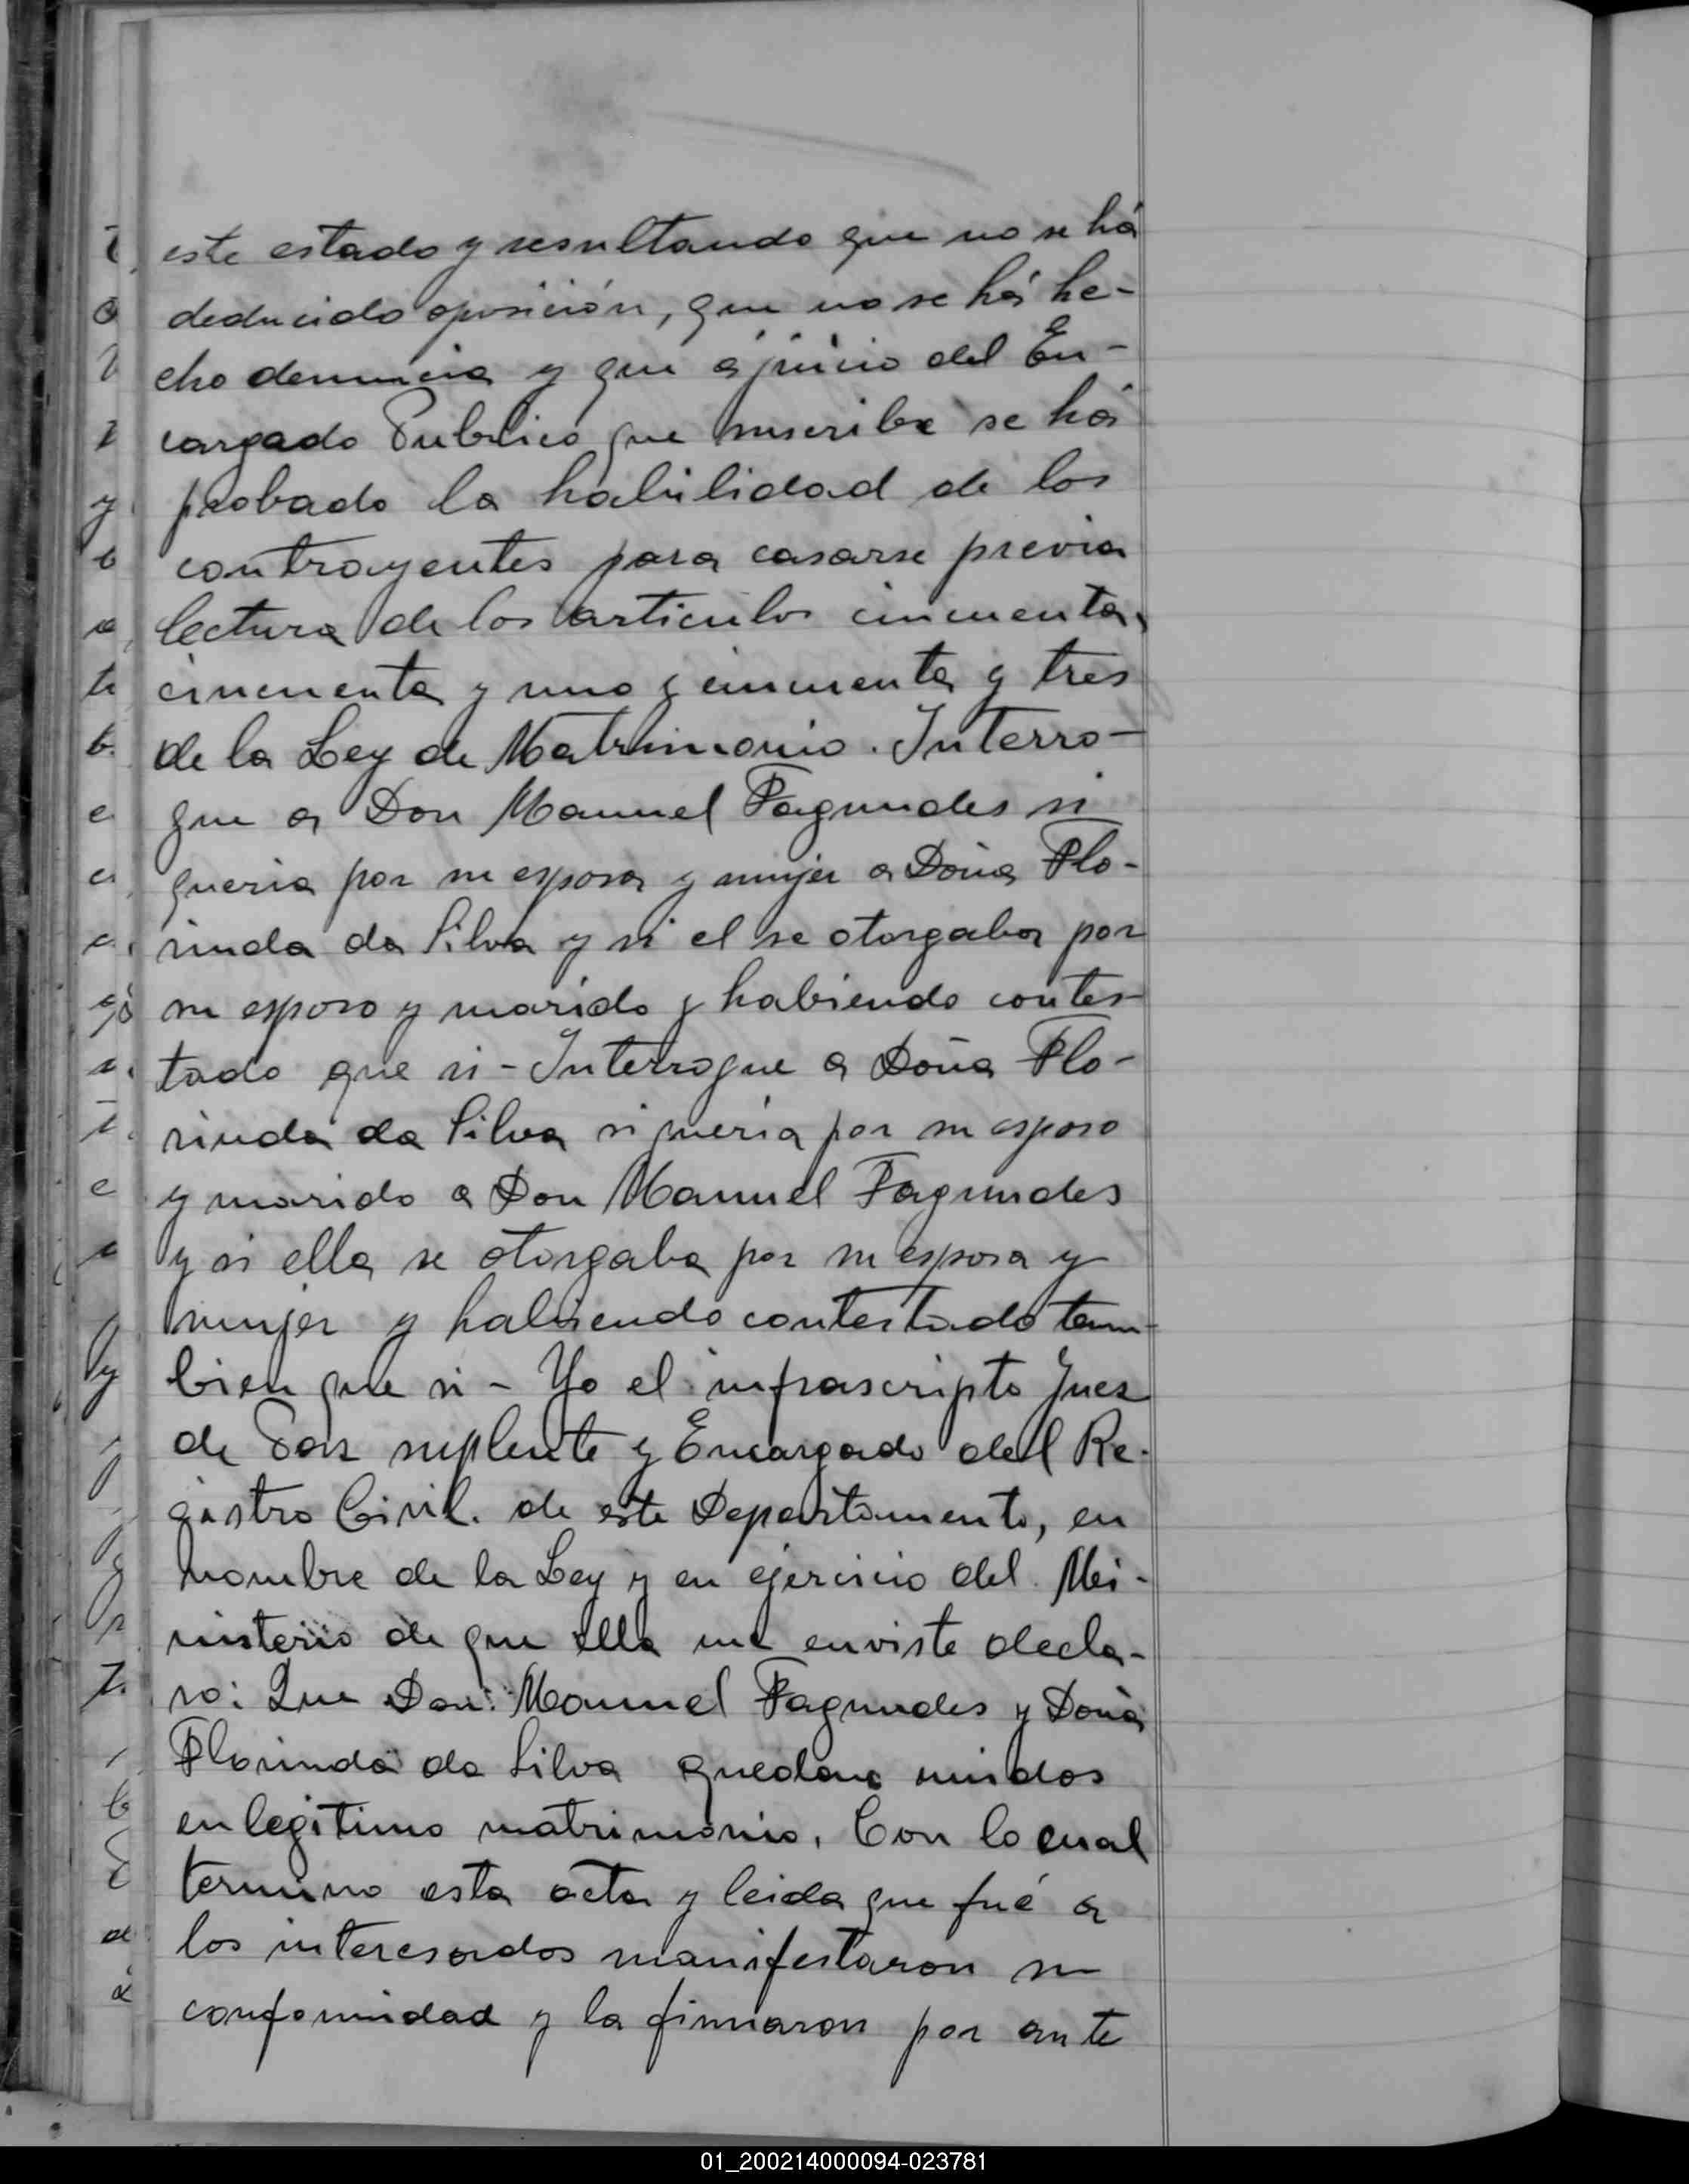 este estado y resultando que no se há
deducido oposición, que no se há he-
cho denuncia y que a juicio del En-
cargado Publico que suscribe se há
probado la habilidad de los
contrayentes para casarse previa
lectura de los articulos cincuenta,
cincuenta y uno y cincuenta y tres
de la Ley de Matrimonio. Interro-
gue a Don Manuel Fagundes si
queria por su esposa y mujer a Doña Flo-
rinda da Silva y si el se otorgaba por
su esposo y marido y habiendo contes-
tado que si - Interrogue a Doña Flo-
rinda da Silva si queria por su esposo
y marido a Don Manuel Fagundes
y si ella se otorgaba por su esposa y
mujer y habiendo contestado tam-
bien que si - Yo el infrascripto Juez
de Paz suplente y Encargado del Re-
gistro Civil. de este Departamento, en
nombre de la Ley y en ejercicio del Mi-
nisterio de que ella me enviste decla-
ro: Que Don Manuel Fagundes y Doña
Florinda da Silva quedan unidos
en legitimo matrimonio. Con lo cual
termino esta acta y leida que fué a
los interesados manifestaron su
conformidad y la firmaron por ante
01_200214000094-023781